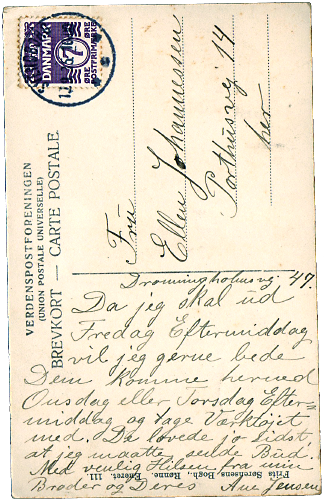 DANMARK
7
ØRE
POSTFRIMÆRKE
VERDENSPOSTFORENINGEN
(UNION POSTALE UNIVERSELLE)
BREVKORT — CARTE POSTALE.
Fru
Ellen Johannessen
Porthusvej 14
her
Dronningholmsvej 47.
Da jeg skal ud
Fredag Eftermiddag
vil jeg gerne bede
Dem komme herned
Onsdag eller Torsdag Efter-
middag og tage Værktøjet
med. De lovede jo sidst,
at jeg maatte sende Bud.
Med venlig Hilsen fra min
Broder og Deres Ane Jensen
Frits Sørensens Bogh., Rønne. Eneret. 111